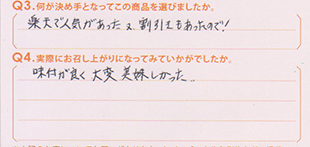 Q3.何が決め手となってこの商品を選びましたか。
楽天で人気があった又、割引もあったので!
Q4.実際にお召し上がりになってみていかがでしたか。
味付が良く大変美味しかった。